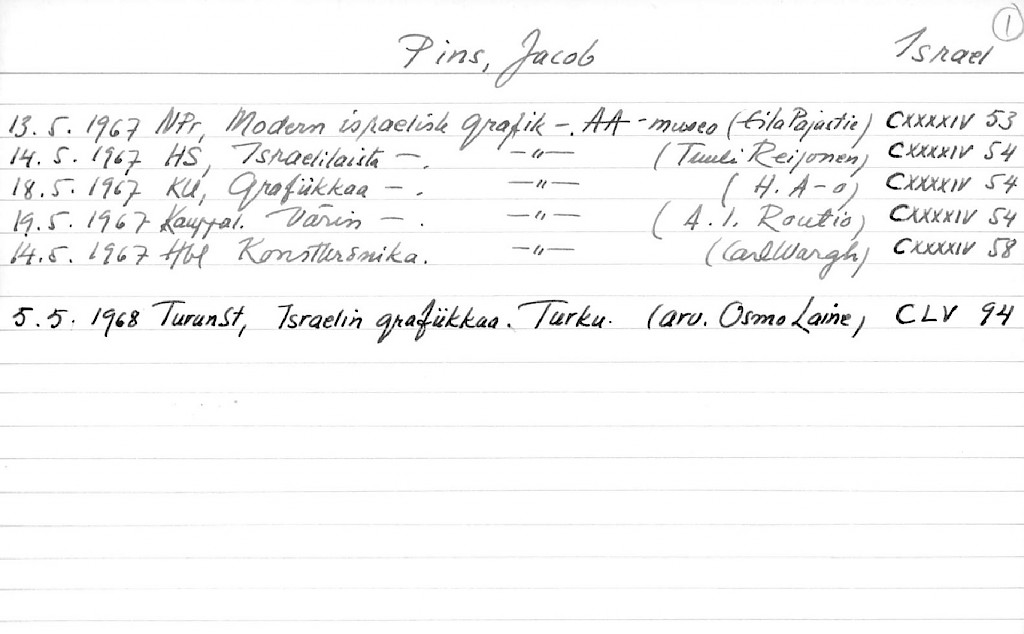 1
Pins, Jacob Israel
13.5.1967 NPr, Modern israelisk grafik -. AA-museo (Eila Pajastie) CXXXXIV 53
14.5.1967 HS, Israelilaista -. -"- (Tuuli Reijonen) CXXXXIV 54
18.5.1967 KU, Grafiikkaa -. -"- (H. A-o) CXXXXIV 54
19.5.1967 Kauppal. Värin -. -"- (A.I. Routio) CXXXXIV 54
14.5.1967 Hbl Konstkrönika. -"- (Carl Wargh) CXXXXIV 58
5.5.1968 TurunSt, Israelin grafiikkaa. Turku. (arv. Osmo Laine) CLV 94